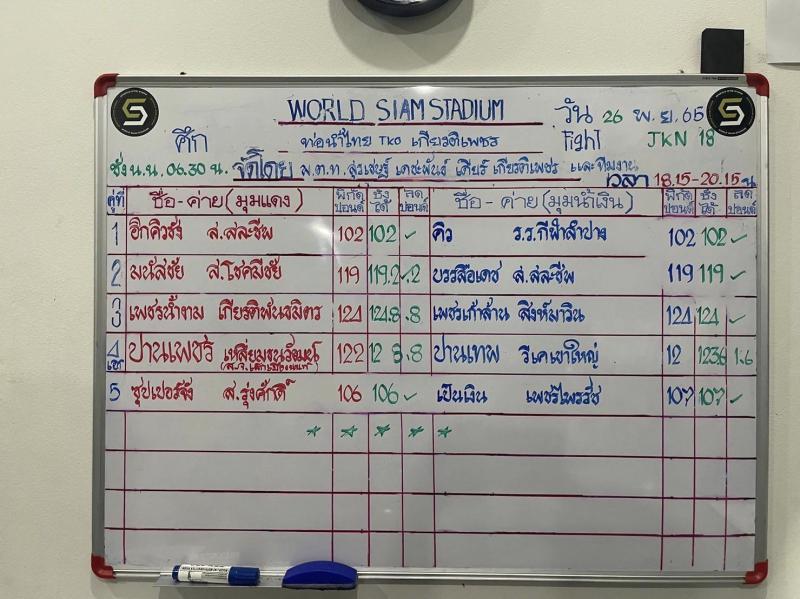 WORLD SIAM STADIUM
วัน 26 พ.ย. 65
ศึก ท่อน้ำไทย TKO เกียรติเพชร Fight JKN 18
ชั่ง น.น. 06.30 น. จัดโดย พ.ต.ท. สุรเชษฐ์ เตชะพันธ์ เกียร์ เกียรติเพชร และทีมงาน
เวลา 18.15-20.15 น.
คู่ที่ ชื่อ - ค่าย (มุมแดง) พิกัด ปอนด์ ชั่ง ได้ ลด ปอนด์ ชื่อ - ค่าย (มุมน้ำเงิน) พิกัด ปอนด์ ชั่ง ได้ ลด ปอนด์
1 อิ๊กคิวซัง ส.สละชีพ 102 102 ✓ คิว ร.ร.กีฬาลำปาง 102 102 ✓
2 มนัสชัย ส.โชคมีชัย 119 119.2 .2 บรรลือเดช ส.สละชีพ 119 119 ✓
3 เพชรน้ำงาม เกียรติพันธมิตร 124 124.8 .8 เพชรเก้าล้าน สิงห์มาวิน 124 124 ✓
4 ปานเพชร เหลี่ยมธนวัฒน์ 122 12 .8 ปานเทพ รีเคเขาใหญ่ 12 123.6 1.6
5 ซุปเปอร์จัง ส.รุ่งศักดิ์ 106 106 ✓ เป็นเงิน เพชรไพรรีซ 107 107 ✓
☆ ☆ ☆ ☆ ☆